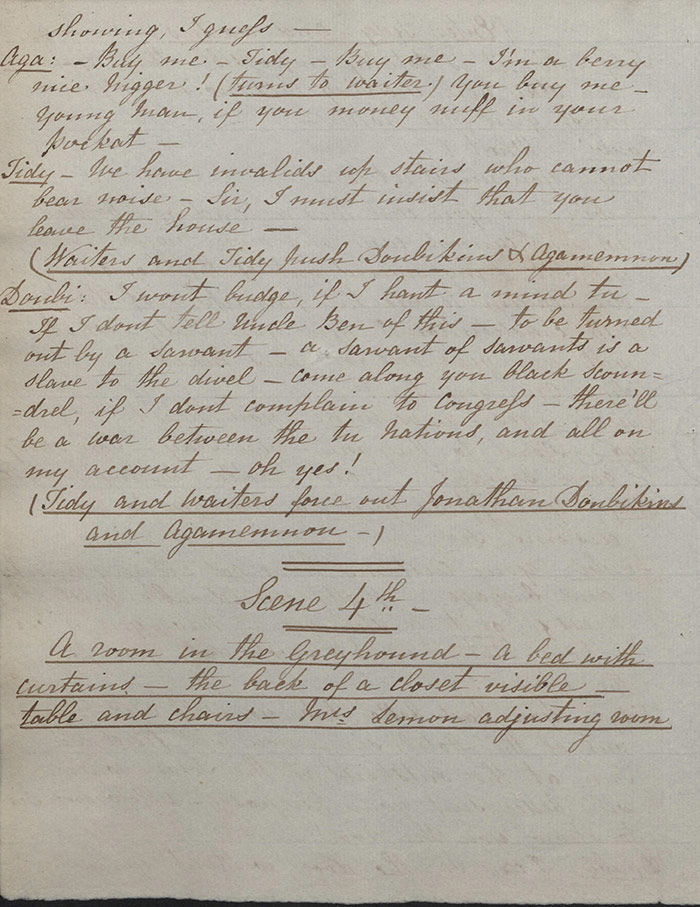 showing, I guess —
Aga: - Buy me - Tidy - Buy me - I'm a berry
nice nigger! (turns to waiter) You buy me -
young man, if you money nuff in your
pockat -
Tidy - We have invalids up stairs who cannot
bear noise - Sir, I must insist that you
leave the house —
(Waiters and Tidy push Doubikins & Agamemnon)
Doubi: I wont budge, if I hant a mind tu -
If I dont tell Uncle Ben of this - to be turned
out by a sarvant - a sarvant of sarvants is a
slave to the divel - come along you black scoun=
=drel, if I dont complain to Congress - there'll
be a war between the tu Nations, and all on
my account - oh yes!
(Tidy and waiters force out Jonathan Doubikins
and Agamemnon -)
Scene 4th -
A room in the Greyhound - A bed with
curtains - the back of a closet visible
table and chairs - Mrs Lemon adjusting room